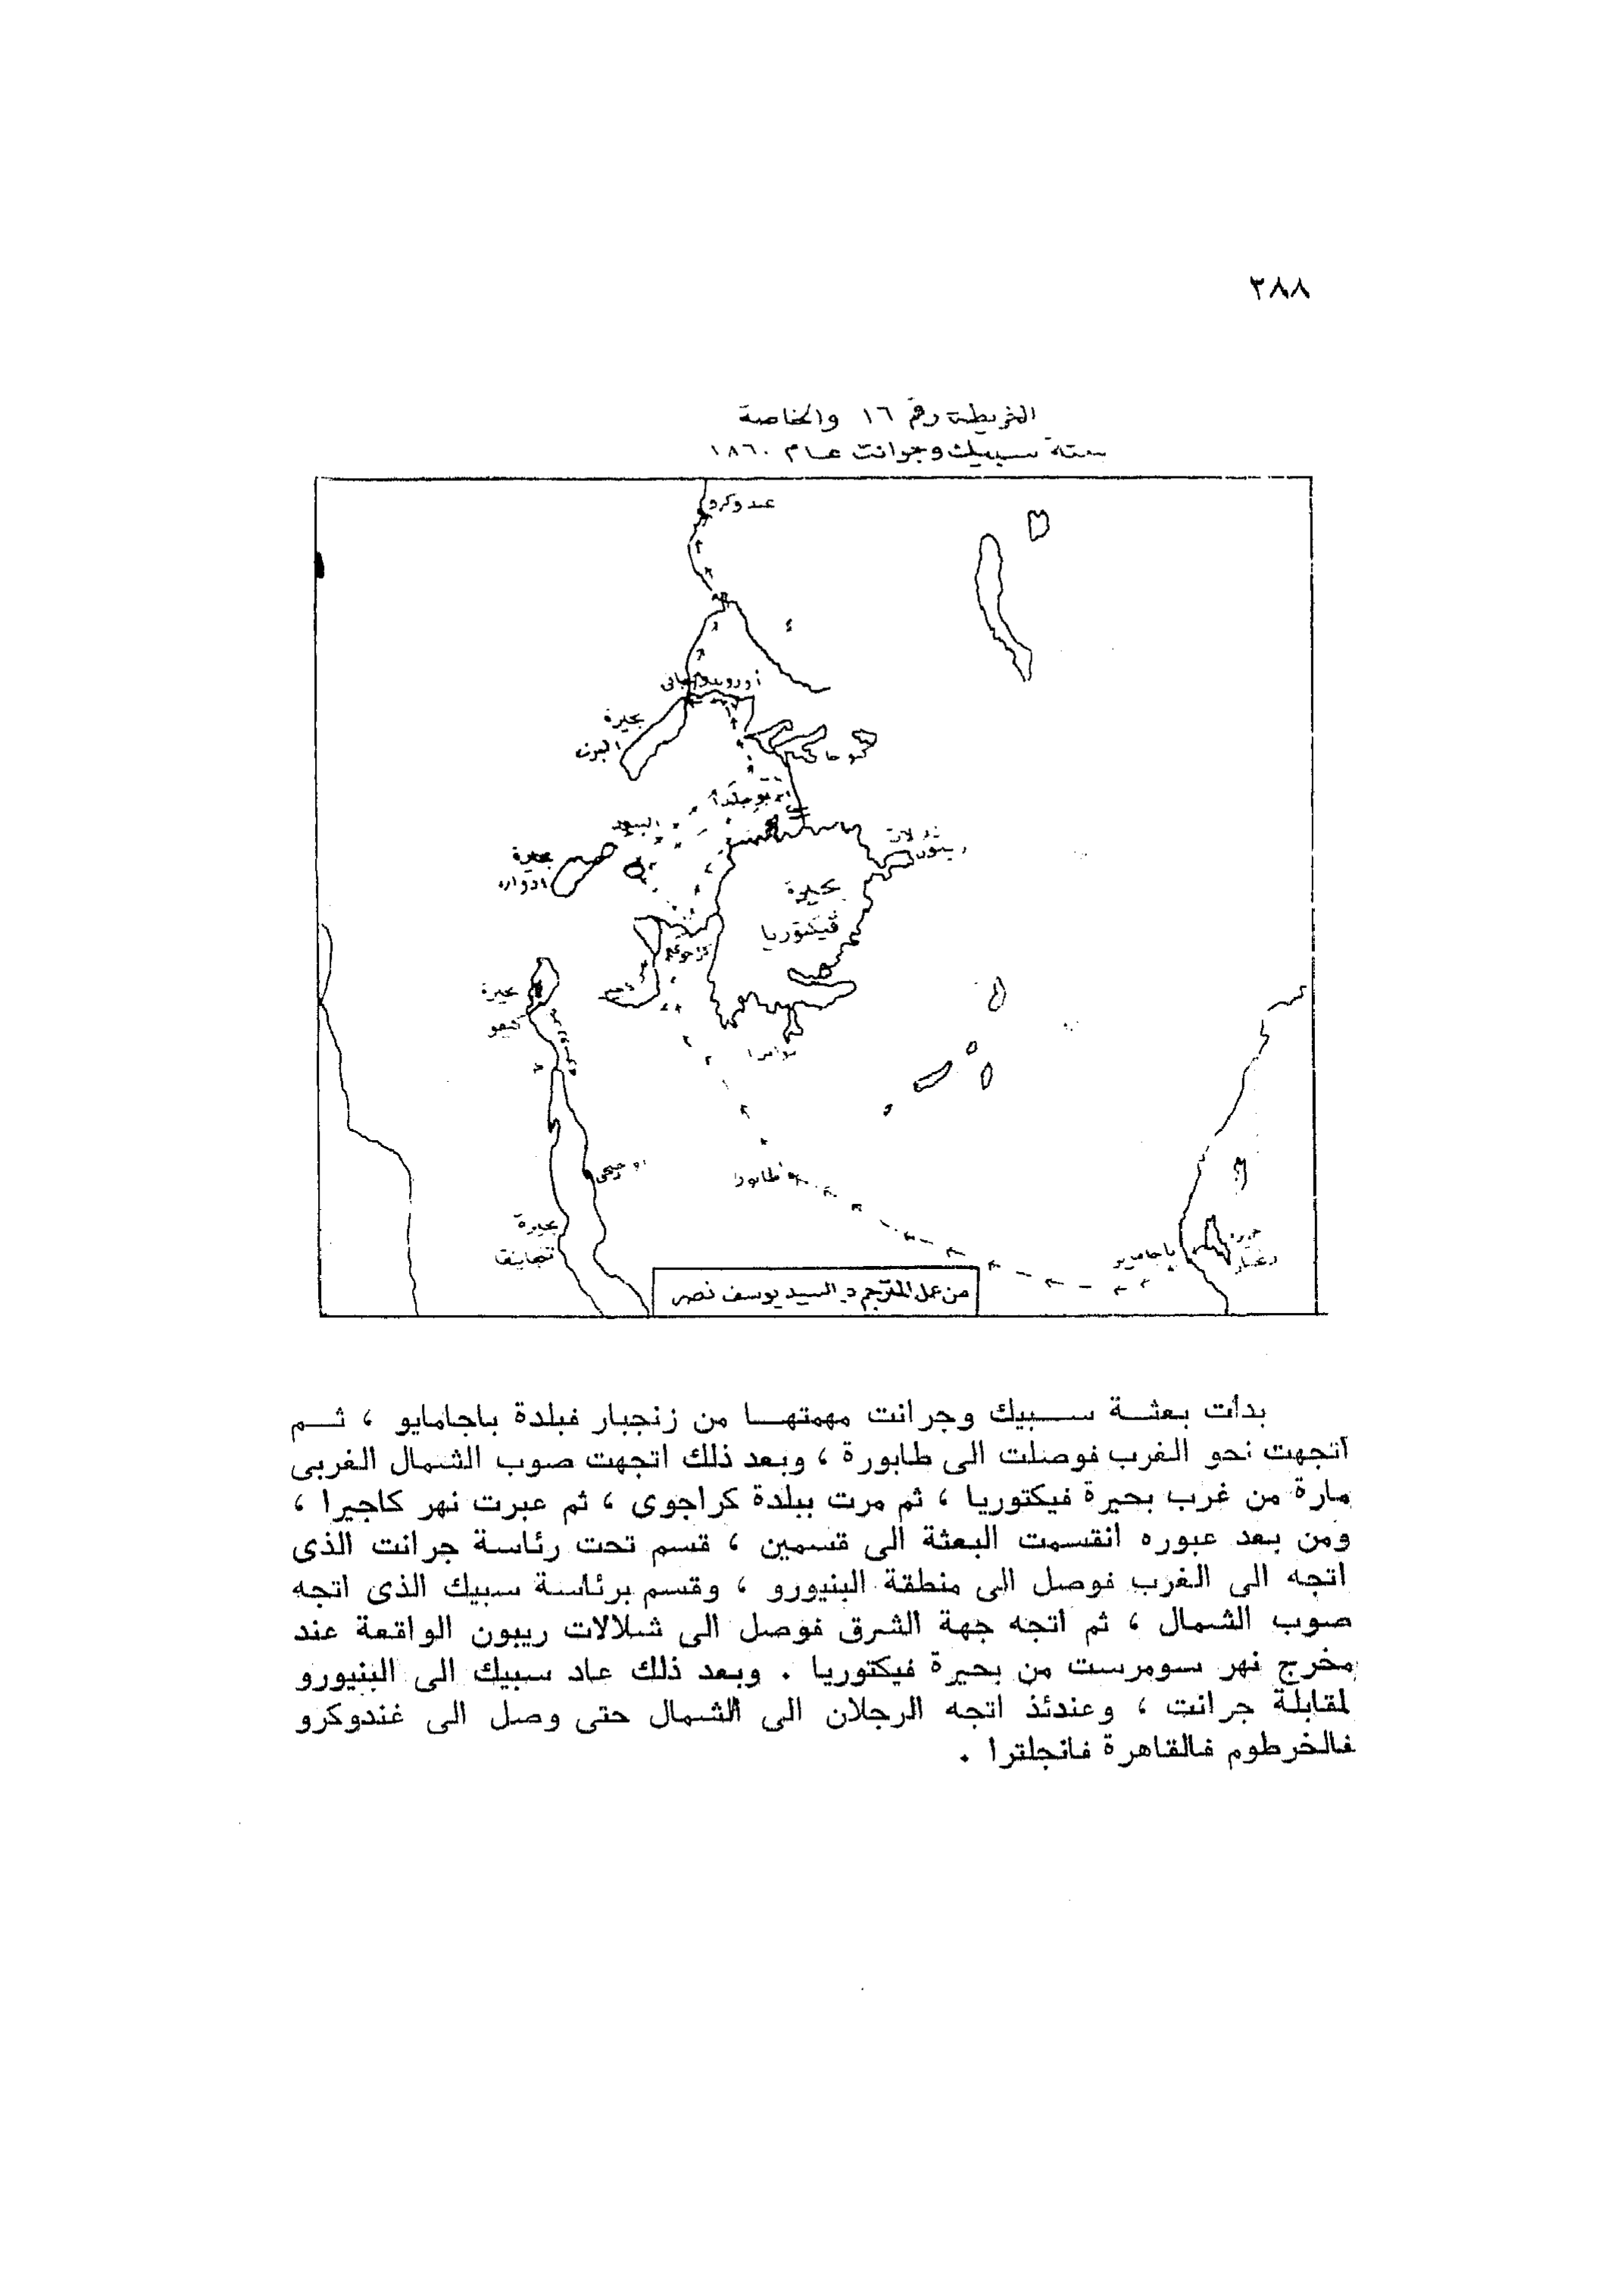 ٣٨٨
الخريطة رقم ١٦ والخاصة
سبيك وجرانت عام ١٨٦٠
بحيرة
البرت
بحيرة
ادوارد
بحيرة
فيكتوريا
بحيرة
كيفو
طابورا
بحيرة
من عمل المترجم د. السيد يوسف نصر
بدأت بعثة سبيك وجرانت مهمتها من زنجبار فبلدة باجامايو ، ثم
اتجهت نحو الغرب فوصلت الى طابورة ، وبعد ذلك اتجهت صوب الشمال الغربى
مارة من غرب بحيرة فيكتوريا ، ثم مرت ببلدة كراجوى ، ثم عبرت نهر كاجيرا ،
ومن بعد عبوره انقسمت البعثة الى قسمين ، قسم تحت رئاسة جرانت الذى
اتجه الى الغرب فوصل الى منطقة البنيورو ، وقسم برئاسة سبيك الذى اتجه
صوب الشمال ، ثم اتجه جهة الشرق فوصل الى شلالات ريبون الواقعة عند
مخرج نهر سومرست من بحيرة فيكتوريا . وبعد ذلك عاد سبيك الى البنيورو
لمقابلة جرانت ، وعندئذ اتجه الرجلان الى الشمال حتى وصل الى غندوكرو
فالخرطوم فالقاهرة فانجلترا .